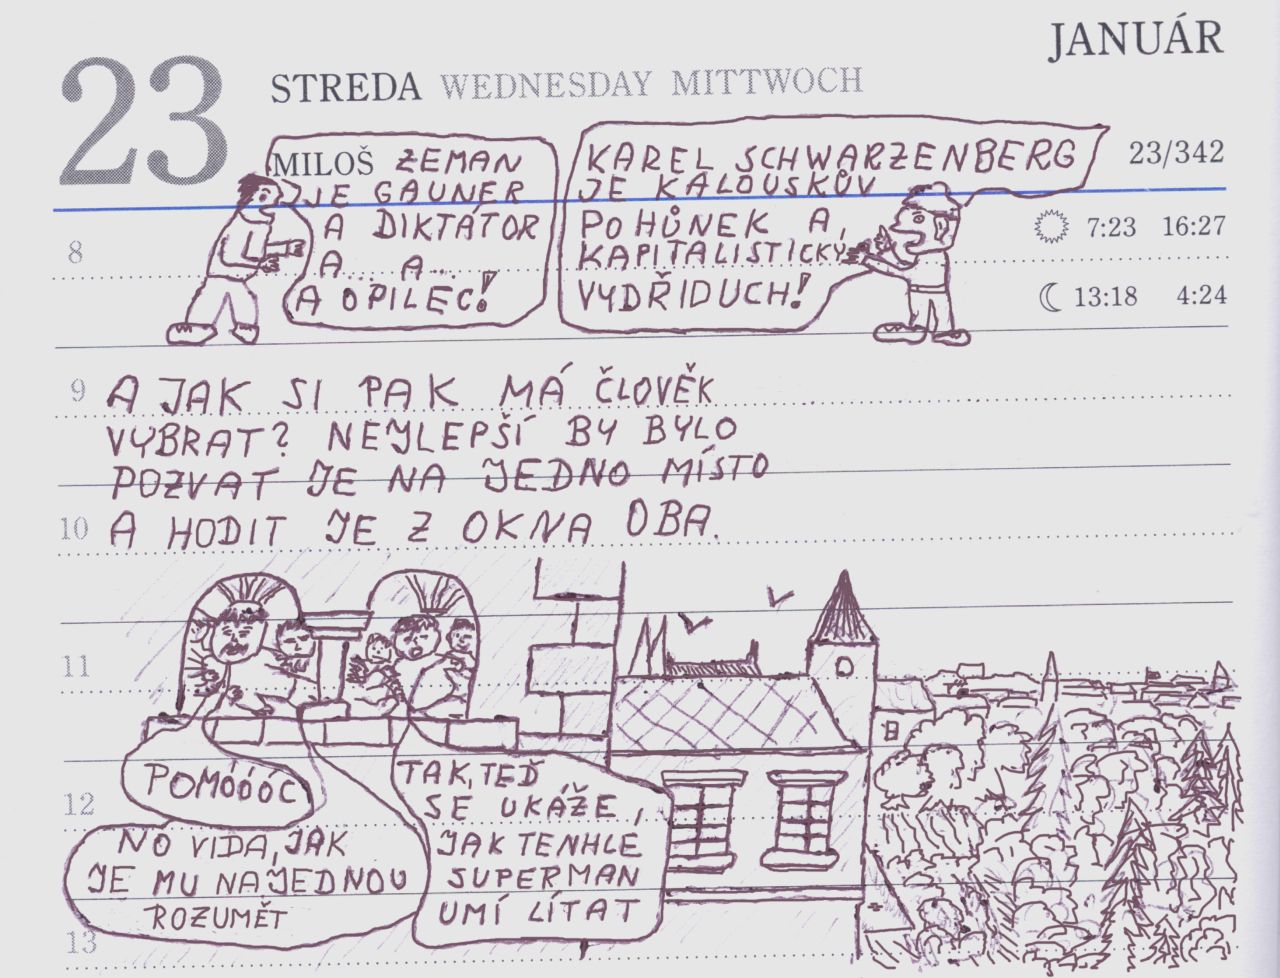 JANUÁR
23
STREDA WEDNESDAY MITTWOCH
23/342
7:23 16:27
13:18 4:24
MILOŠ ZEMAN
JE GAUNER
A DIKTÁTOR
A... A...
A OPILEC!
KAREL SCHWARZENBERG
JE KALOUSKŮV
POHŮNEK A
KAPITALISTICKÝ
VYDŘIDUCH!
8
9
A JAK SI PAK MÁ ČLOVĚK
VYBRAT? NEJLEPŠÍ BY BYLO
POZVAT JE NA JEDNO MÍSTO
10
A HODIT JE Z OKNA OBA.
11
12
POMÓÓÓC
NO VIDA, JAK
JE MU NAJEDNOU
ROZUMĚT
TAK, TEĎ
SE UKÁŽE,
JAK TENHLE
SUPERMAN
UMÍ LÍTAT
13